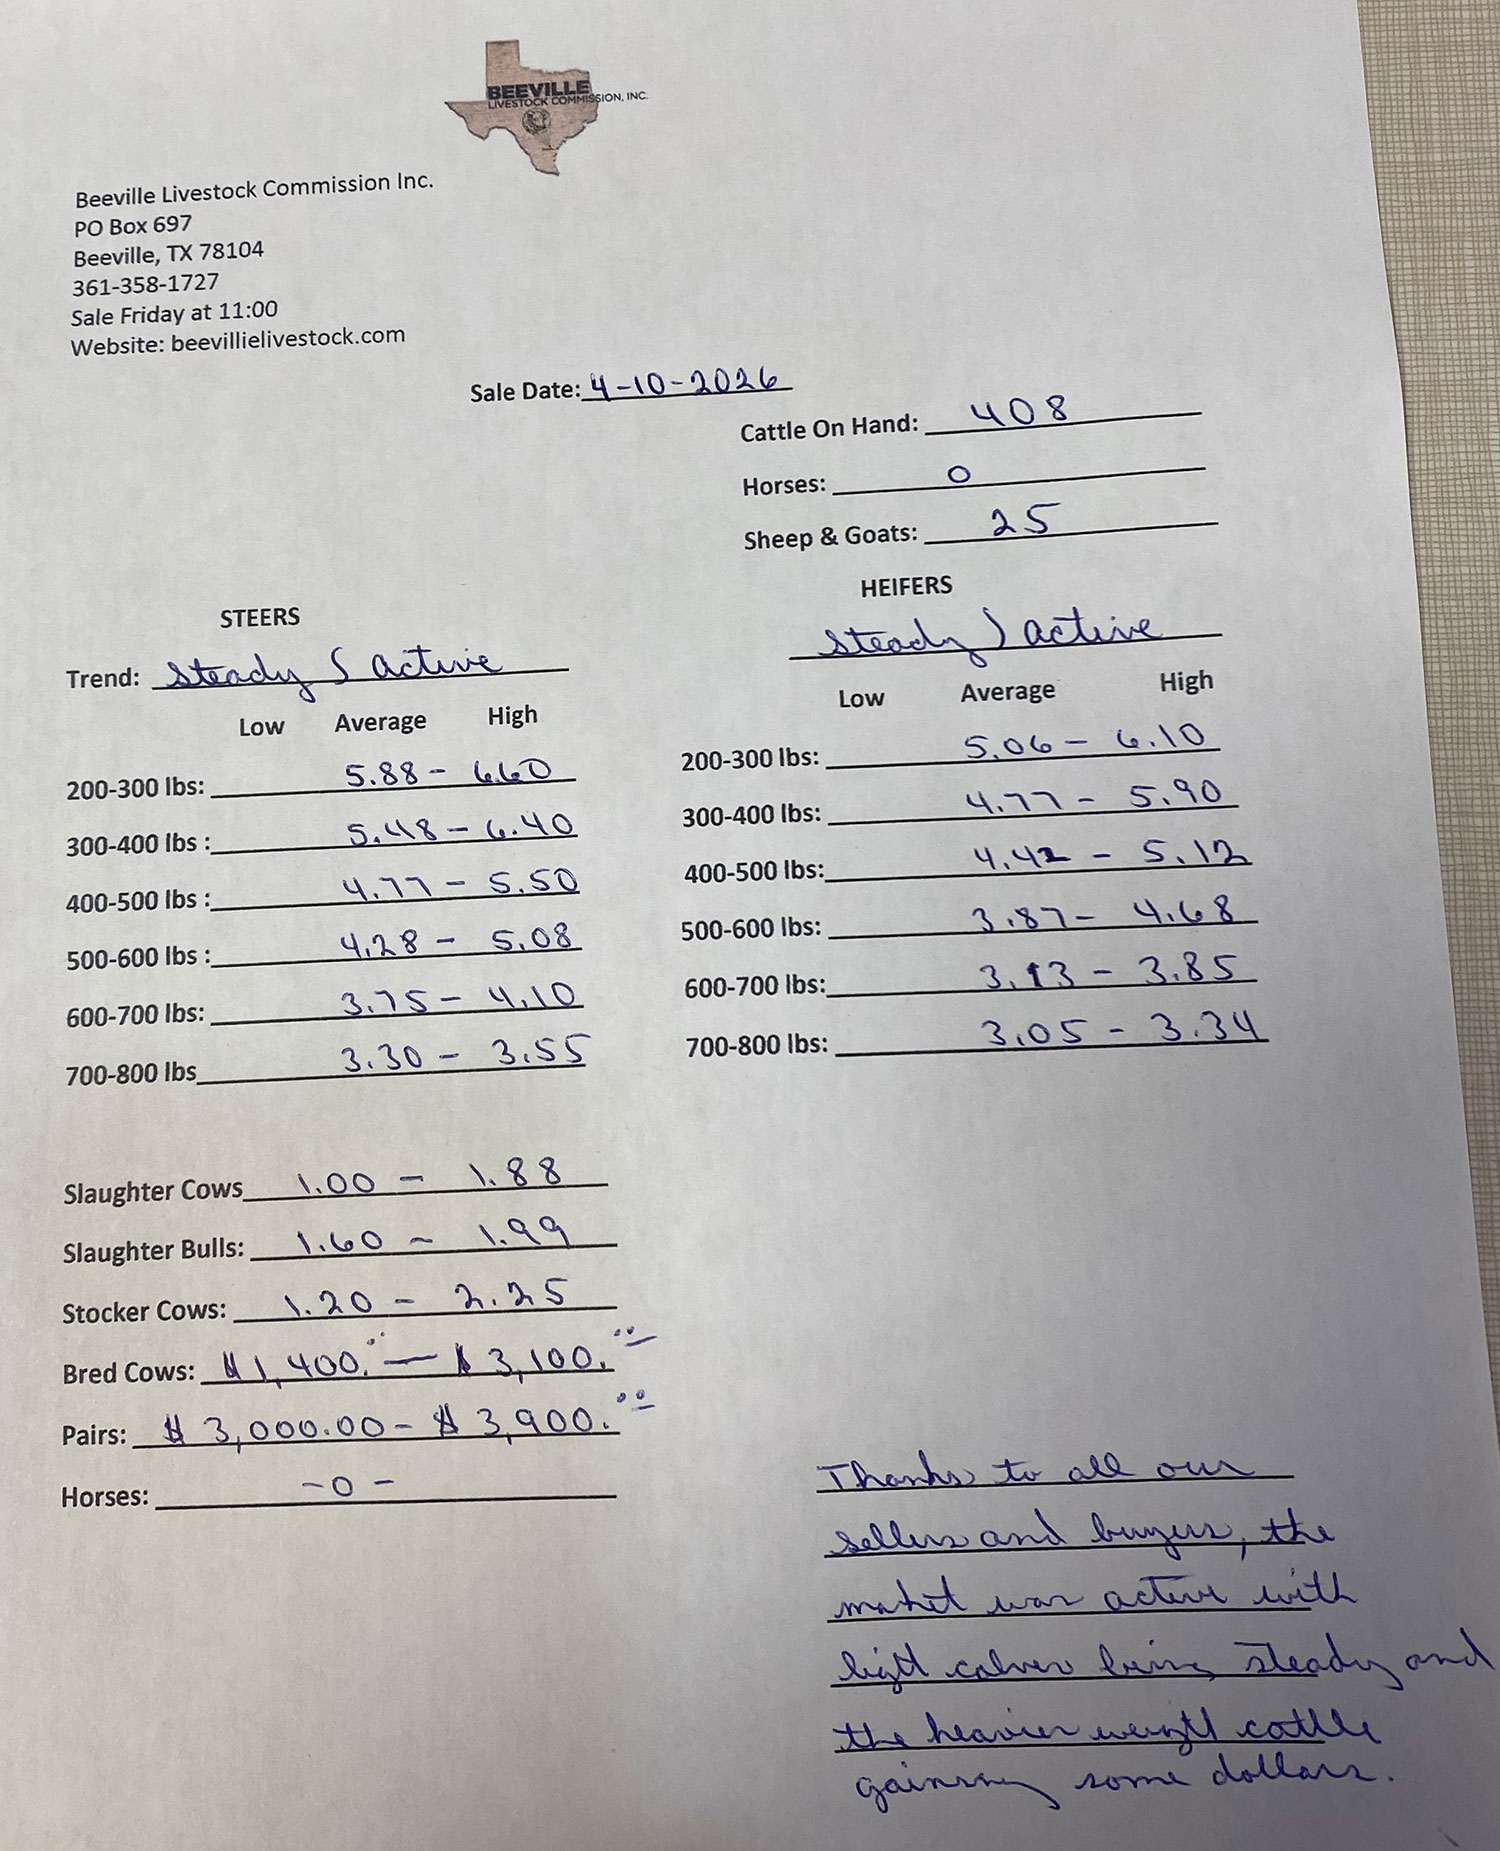 BEEVILLE
LIVESTOCK COMMISSION, INC.
Beeville Livestock Commission Inc.
PO Box 697
Beeville, TX 78104
361-358-1727
Sale Friday at 11:00
Website: beevillielivestock.com
Sale Date: 4-10-2026
Cattle On Hand: 408
Horses: 0
Sheep & Goats: 25
STEERS
Trend: Steady & active
Low Average High
200-300 lbs: 5.88 - 6.60
300-400 lbs : 5.48 - 6.40
400-500 lbs : 4.77 - 5.50
500-600 lbs : 4.28 - 5.08
600-700 lbs: 3.75 - 4.10
700-800 lbs 3.30 - 3.55
HEIFERS
Steady & active
Low Average High
200-300 lbs: 5.06 - 6.10
300-400 lbs: 4.77 - 5.90
400-500 lbs: 4.42 - 5.12
500-600 lbs: 3.87 - 4.68
600-700 lbs: 3.13 - 3.85
700-800 lbs: 3.05 - 3.34
Slaughter Cows 1.00 - 1.88
Slaughter Bulls: 1.60 - 1.99
Stocker Cows: 1.20 - 2.25
Bred Cows: $1,400.00 - $3,100.00
Pairs: $3,000.00 - $3,900.00
Horses: -0-
Thanks to all our
sellers and buyers, the
market was active with
light calves being steady and
the heavier weight cattle
gaining some dollars.